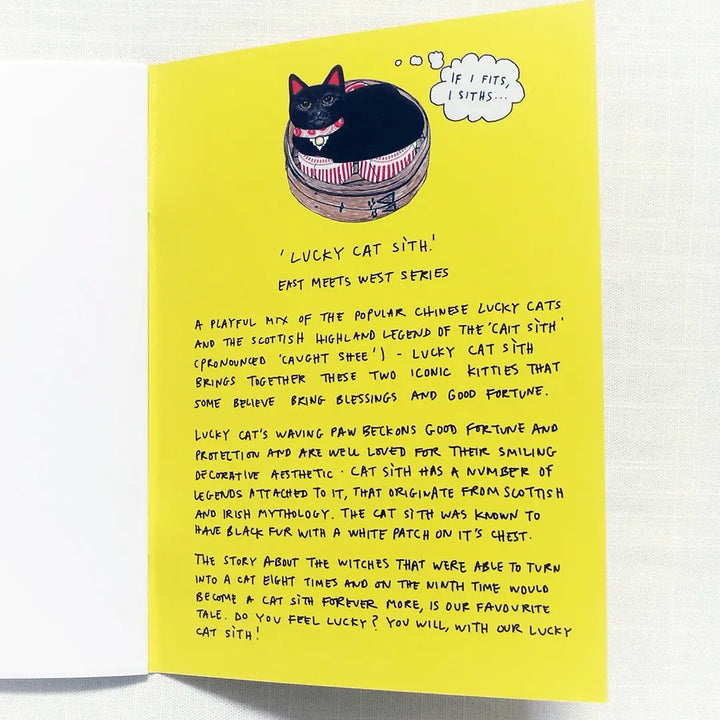 IF I FITS,
I SITHS...
'LUCKY CAT SÌTH.'
EAST MEETS WEST SERIES
A PLAYFUL MIX OF THE POPULAR CHINESE LUCKY CATS
AND THE SCOTTISH HIGHLAND LEGEND OF THE 'CAIT SÌTH'
(PRONOUNCED 'CAUGHT SHEE') - LUCKY CAT SÌTH
BRINGS TOGETHER THESE TWO ICONIC KITTIES THAT
SOME BELIEVE BRING BLESSINGS AND GOOD FORTUNE.
LUCKY CAT'S WAVING PAW BECKONS GOOD FORTUNE AND
PROTECTION AND ARE WELL LOVED FOR THEIR SMILING
DECORATIVE AESTHETIC. CAT SÌTH HAS A NUMBER OF
LEGENDS ATTACHED TO IT, THAT ORIGINATE FROM SCOTTISH
AND IRISH MYTHOLOGY. THE CAT SÌTH WAS KNOWN TO
HAVE BLACK FUR WITH A WHITE PATCH ON IT'S CHEST.
THE STORY ABOUT THE WITCHES THAT WERE ABLE TO TURN
INTO A CAT EIGHT TIMES AND ON THE NINTH TIME WOULD
BECOME A CAT SÌTH FOREVER MORE, IS OUR FAVOURITE
TALE. DO YOU FEEL LUCKY? YOU WILL, WITH OUR LUCKY
CAT SÌTH!